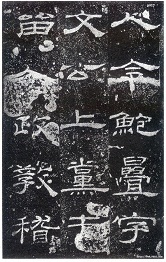 人令鮑疊字
文公上黨屯
留人政敎稽